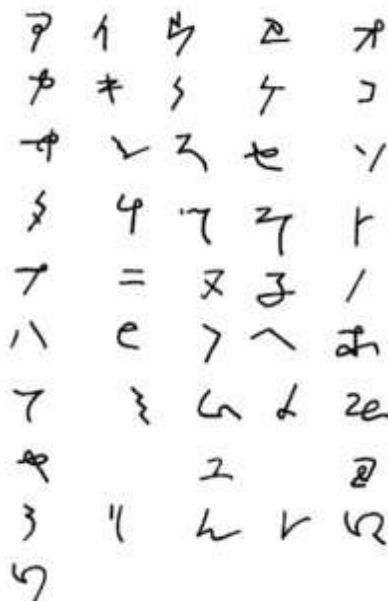 ア イ ウ エ オ
カ キ ク ケ コ
サ シ ス セ ソ
タ チ ツ テ ト
ナ ニ ヌ ネ ノ
ハ ヒ フ ヘ ホ
マ ミ ム メ モ
ヤ ユ ヨ
ラ リ ル レ ロ
ワ